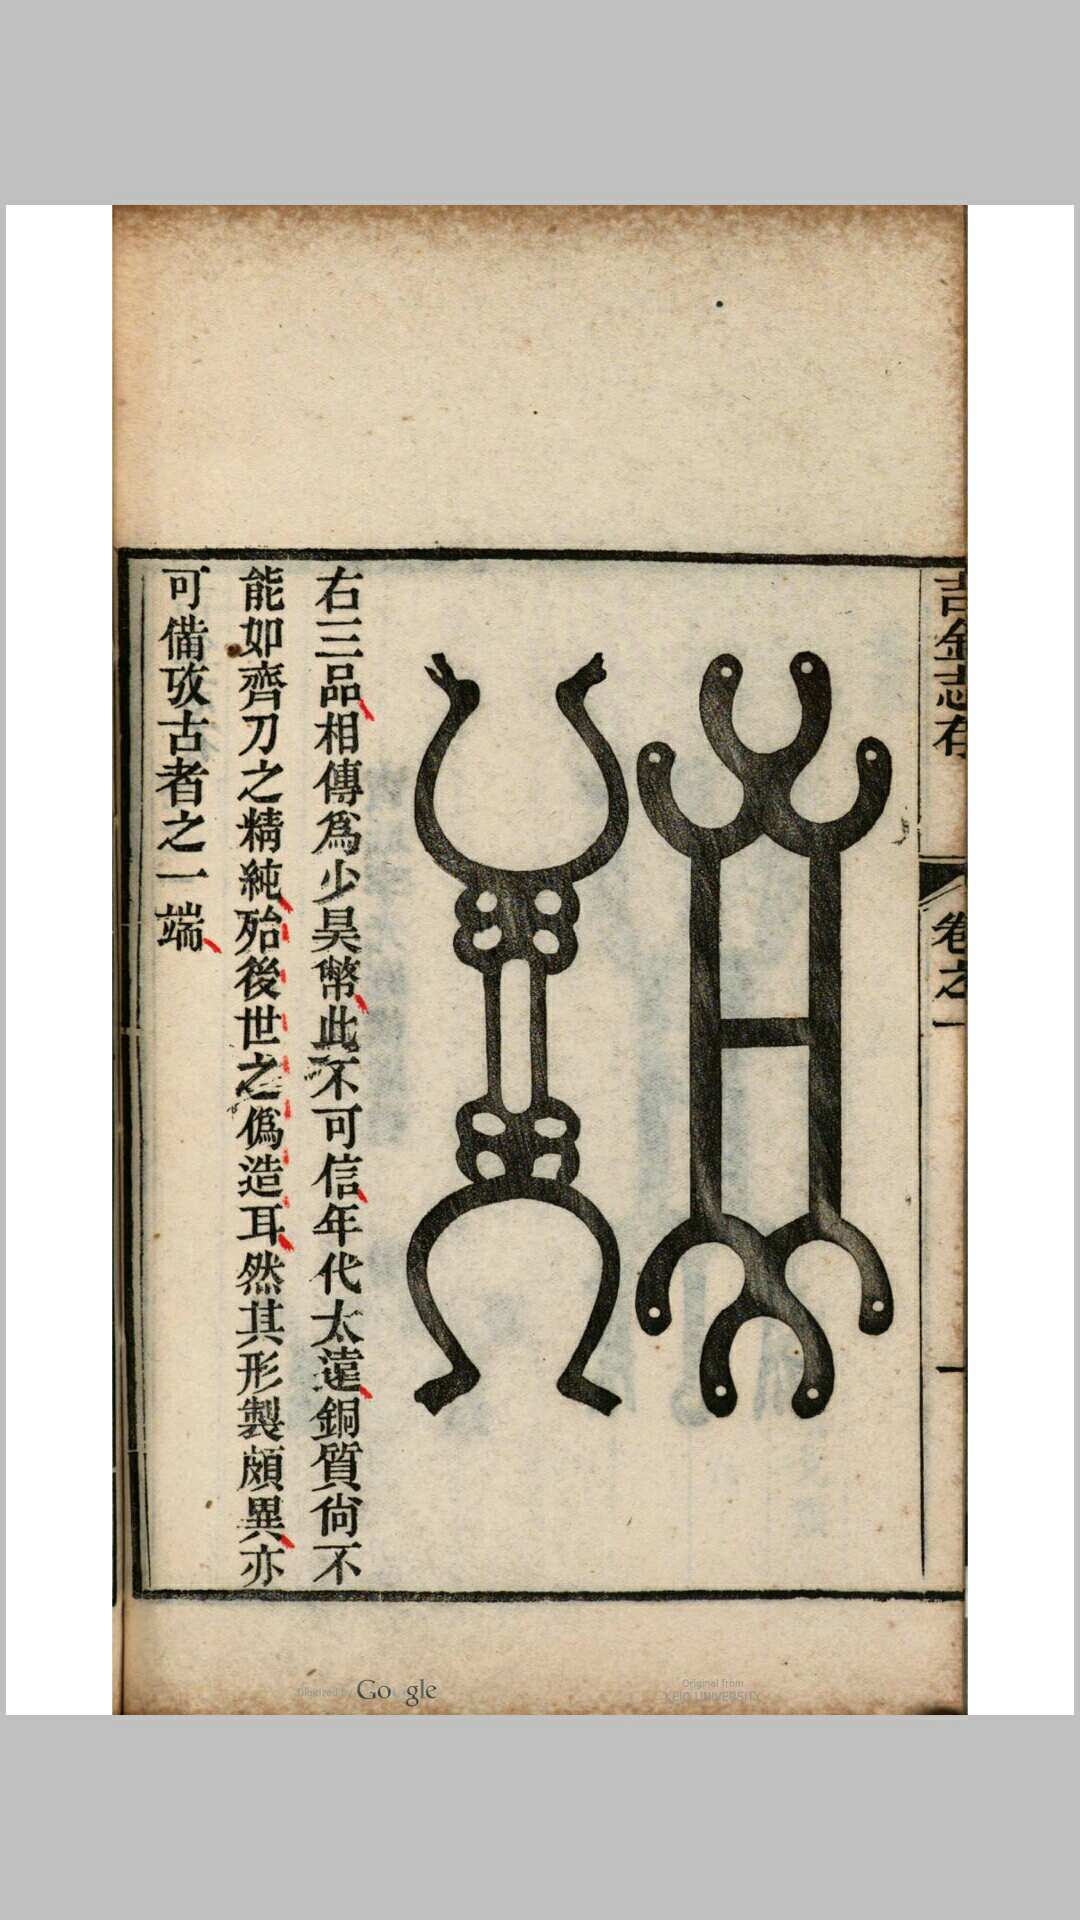 吉金志存
卷之一
一
右三品相傳爲少昊幣此不可信年代太遠銅質尙不
能如齊刀之精純殆後世之僞造耳然其形製頗異亦
可備攷古者之一端
Digitized by Google
Original from
KEIO UNIVERSITY